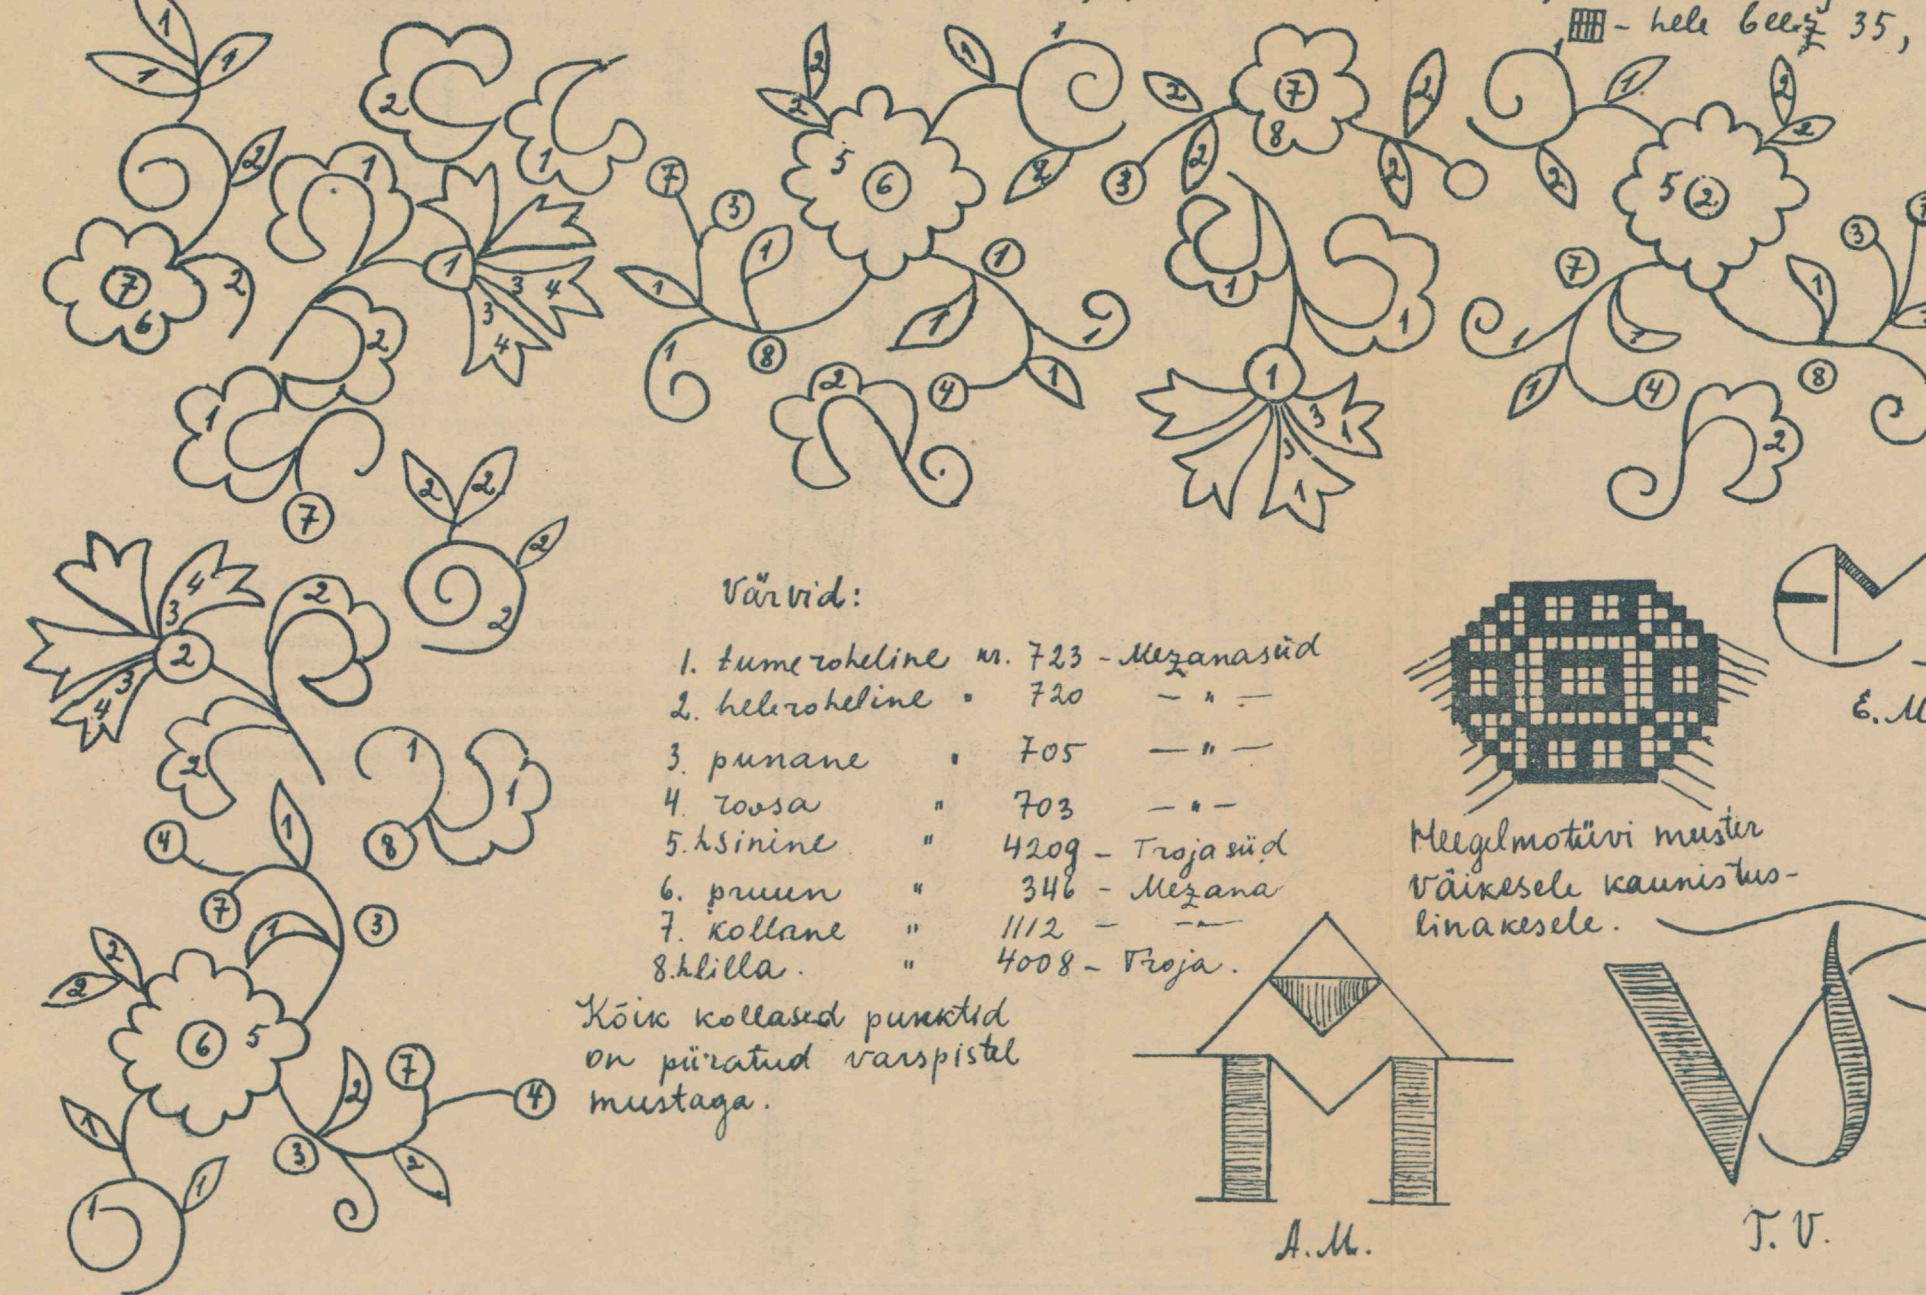 - hele beež 35,
Värvid:
1. tumeroheline nr. 723 - Mezanasiid
2. heleroheline " 720 - " -
3. punane " 705 - " -
4. roosa " 703 - " -
5. h sinine " 420g - Troja siid
6. pruun " 346 - Mezana
7. kollane " 1112 - - " -
8. h lilla. " 4008 - Troja.
Kõik kollased punktid
on piiratud varspistel
mustaga.
Heegelmotiivi muster
väikesele kaunistus-
linakesele.
E.M
A.M.
T.V.